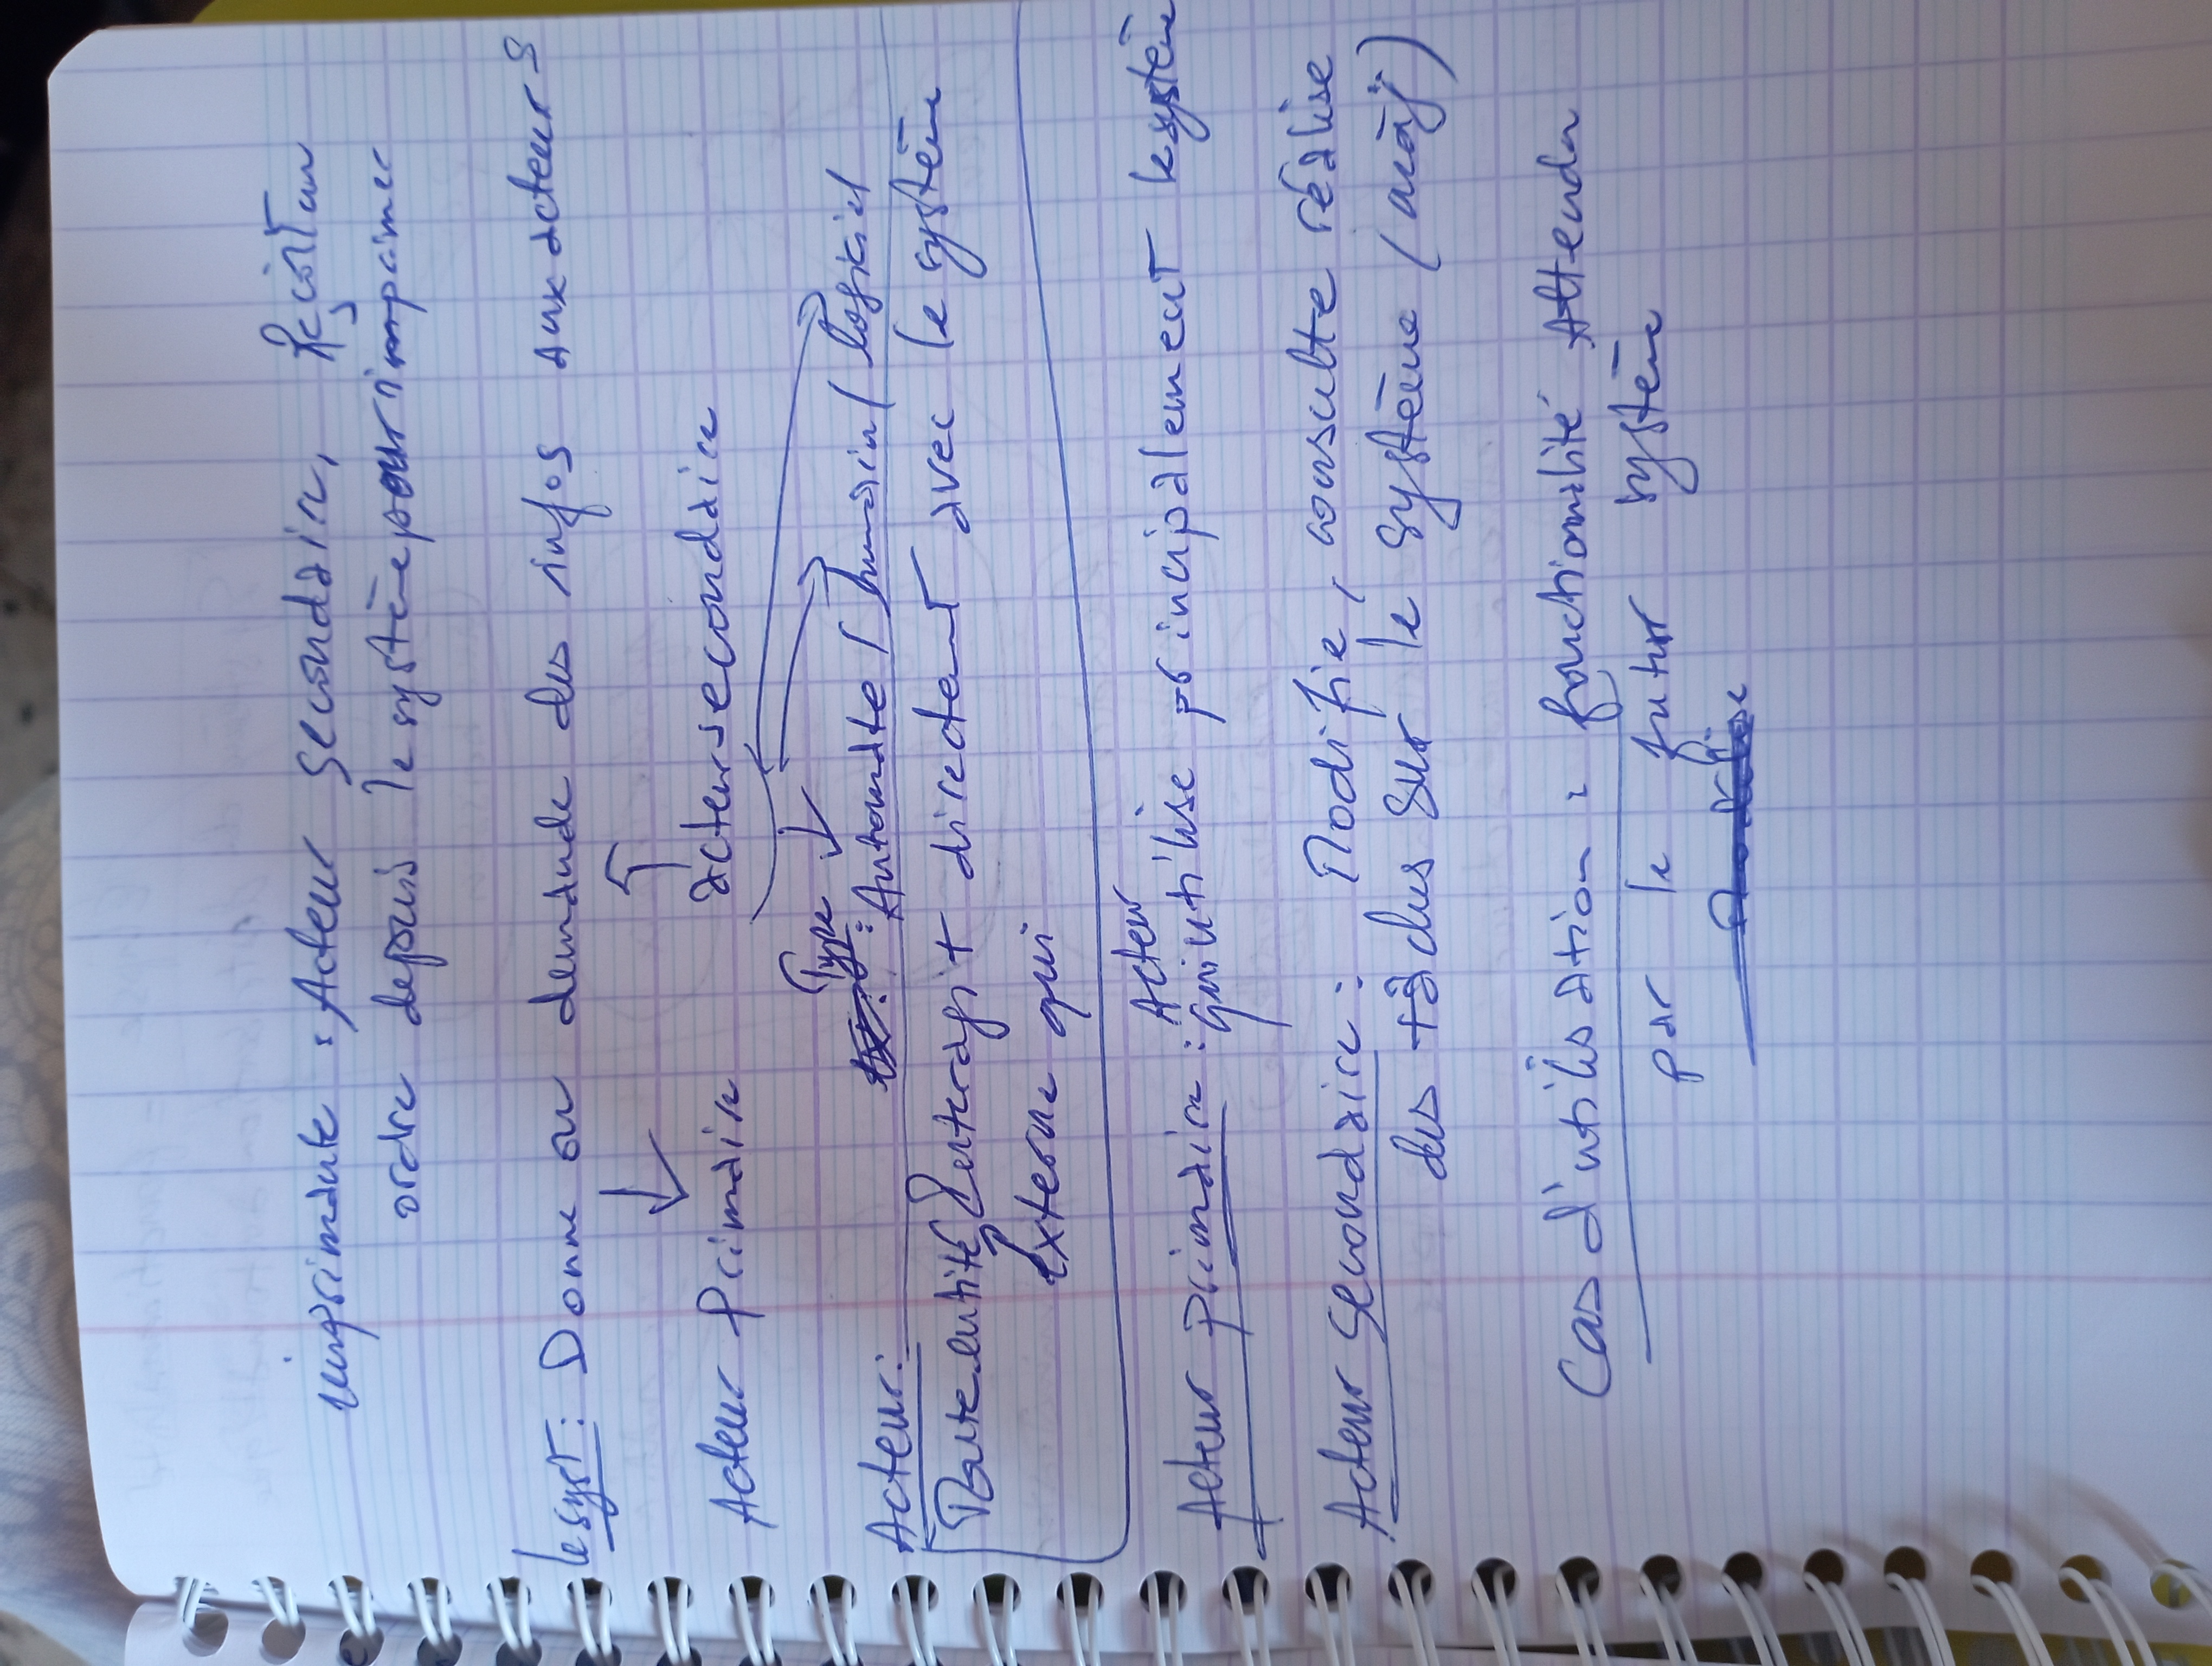 imprimante : Acteur secondaire, Reçoit un
ordre depuis le système pour imprimer
le syst : Donne ou demande des infos aux acteurs
Acteur Primaire acteur secondaire
Type : Automate / humain / logiciel
Acteur :
Toute entité interagit directent avec le système
Externe qui
Acteur
Acteur primaire : qui utilise principalement le système
Acteur secondaire : Modifie, consulte réalise
des tâches sur le système (màj)
Cas d'utilisation : fonctionalité Attendu
par le futur système